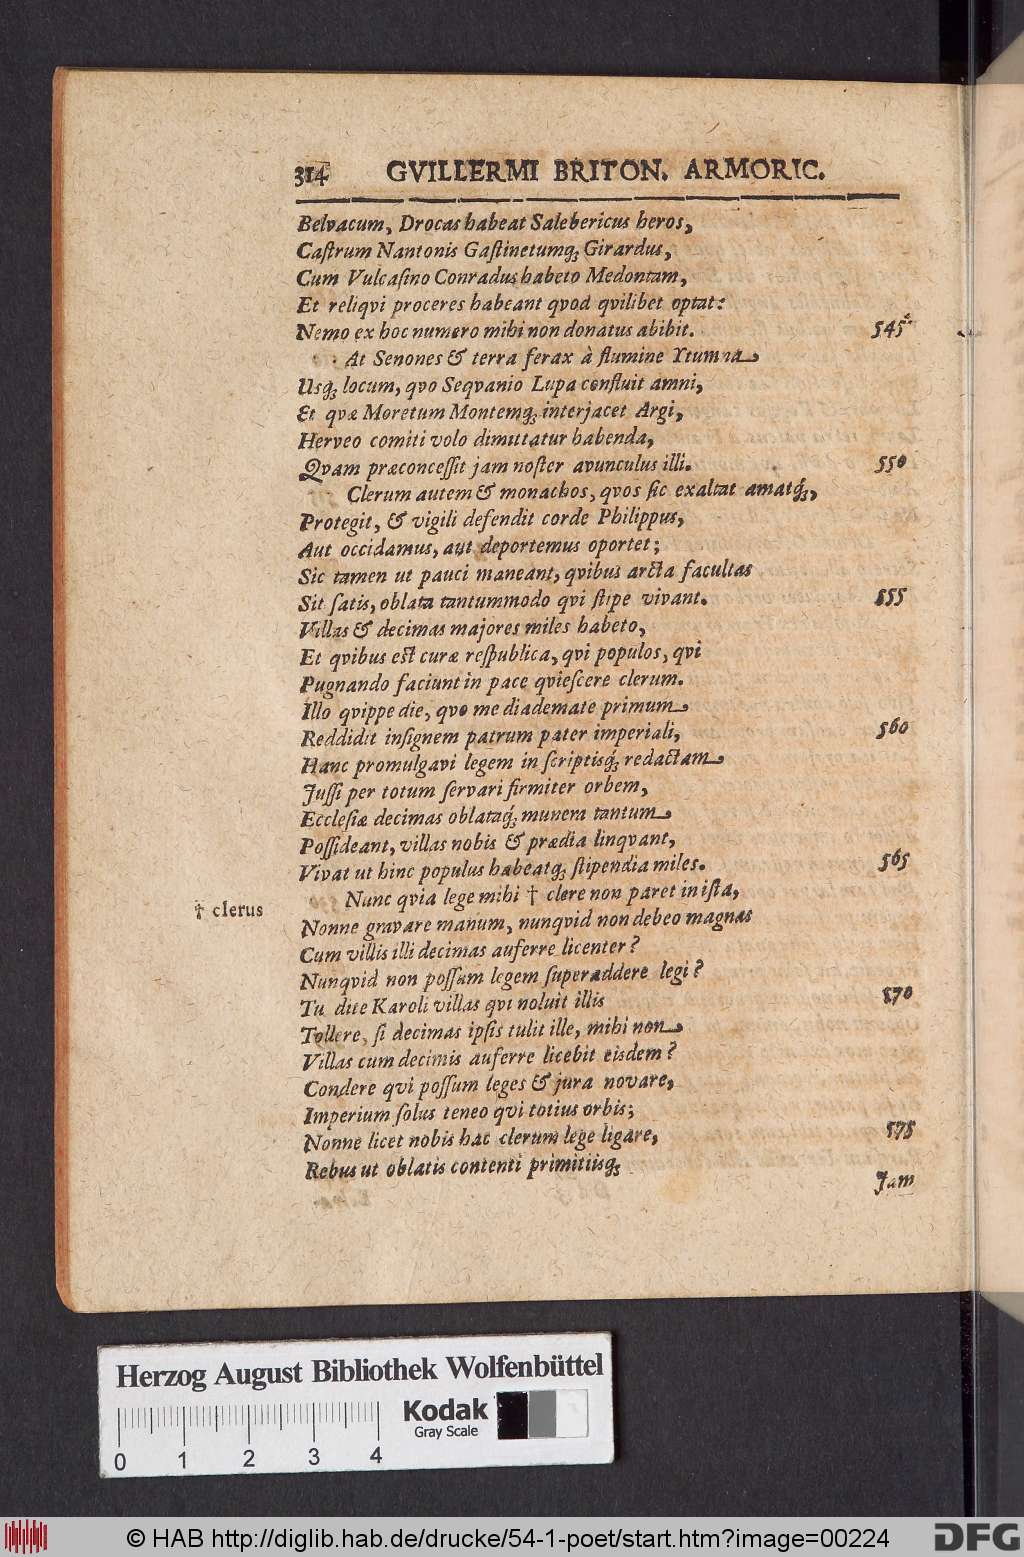 314 GVILLERMI BRITON. ARMORIC.
Belvacum, Drocas habeat Salebericus heros,
Caſtrum Nantonis Gaſtinetumq; Girardus,
Cum Vulcaſino Conradus habeto Medontam,
Et reliqvi proceres habeant qvod qvilibet optat:
Nemo ex hoc numero mihi non donatus abibit. 545
At Senones & terra ferax à flumine Ytumna
Usq; locum, qvo Seqvanio Lupa confluit amni,
Et qvæ Moretum Montemq; interjacet Argi,
Herveo comiti volo dimittatur habenda,
Qvam præconceſſit jam noſter avunculus illi. 550
Clerum autem & monachos, qvos ſic exaltat amatq́;,
Protegit, & vigili defendit corde Philippus,
Aut occidamus, aut deportemus oportet;
Sic tamen ut pauci maneant, qvibus arcta facultas
Sit ſatis, oblata tantummodo qvi ſtipe vivant. 555
Villas & decimas majores miles habeto,
Et qvibus eſt curæ reſpublica, qvi populos, qvi
Pugnando faciunt in pace qvieſcere clerum.
Illo qvippe die, qvo me diademate primum
Reddidit inſignem patrum pater imperiali, 560
Hanc promulgavi legem in ſcriptisq́; redactam
Juſſi per totum ſervari firmiter orbem,
Eccleſiæ decimas oblataq́; munera tantum
Poſſideant, villas nobis & prædia linqvant,
Vivat ut hinc populus habeatq; ſtipendia miles. 565
Nunc qvia lege mihi † clere non paret in iſta,
† clerus
Nonne gravare manum, nunqvid non debeo magnas
Cum villis illi decimas auferre licenter?
Nunqvid non poſſum legem ſuperaddere legi?
Tu dite Karoli villas qvi noluit illis 570
Tollere, ſi decimas ipſis tulit ille, mihi non
Villas cum decimis auferre licebit eisdem?
Condere qvi poſſum leges & jura novare,
Imperium ſolus teneo qvi totius orbis;
Nonne licet nobis hac clerum lege ligare, 575
Rebus ut oblatis contenti primitiisq;
Jam
Herzog August Bibliothek Wolfenbüttel
Kodak
Gray Scale
0 1 2 3 4
© HAB http://diglib.hab.de/drucke/54-1-poet/start.htm?image=00224
DFG